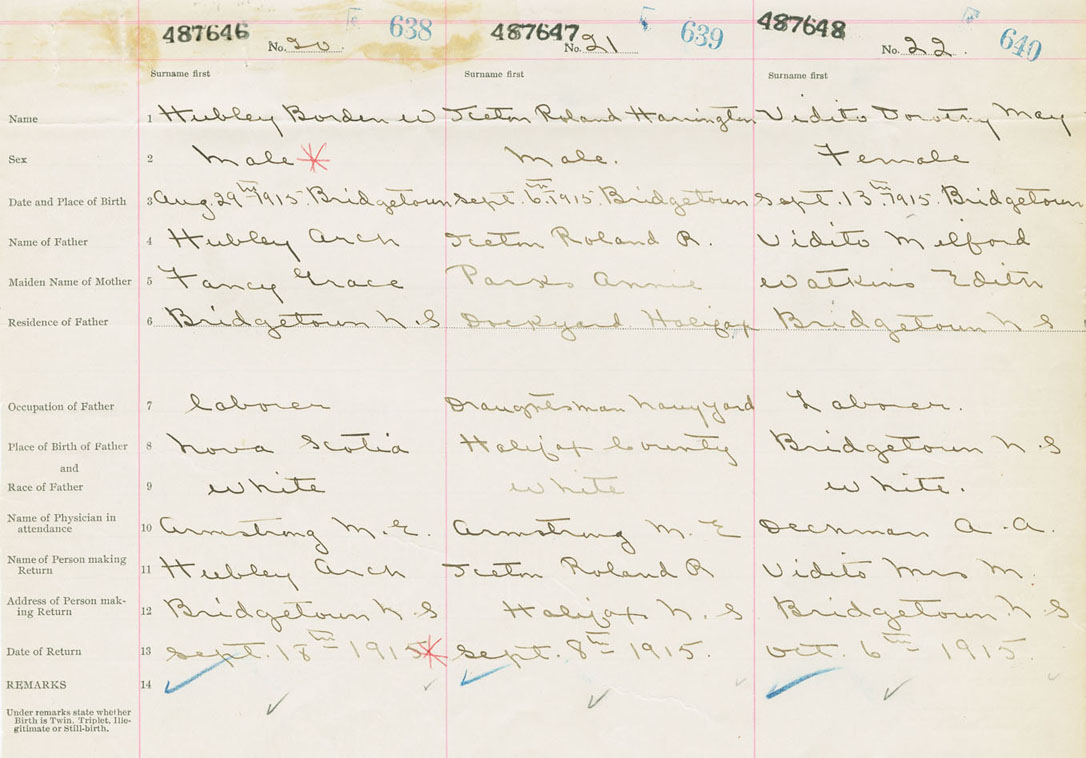 487646 No. 20. 638 487647 No. 21 639 487648 No. 22. 640
Surname first Surname first Surname first
Name 1 Hubley Borden W Roland Harrington Vidito Dorothy May
Sex 2 Male Male. Female
Date and Place of Birth 3 Aug. 29th 1915. Bridgetown Sept. 6th 1915. Bridgetown Sept. 13th 1915. Bridgetown
Name of Father 4 Hubley Arch Roland R. Vidito Milford
Maiden Name of Mother 5 Fancy Grace Parks Annie Watkins Edith
Residence of Father 6 Bridgetown N.S Dockyard Halifax Bridgetown N S
Occupation of Father 7 laborer Draughtsman Navy yard Laborer.
Place of Birth of Father 8 Nova Scotia Halifax County Bridgetown N S
and
Race of Father 9 White White White.
Name of Physician in
attendance 10 Armstrong M.E. Armstrong M. E A.A.
Name of Person making
Return 11 Hubley Arch Roland R Vidito Mrs M.
Address of Person mak-
ing Return 12 Bridgetown N.S Halifax N.S Bridgetown N S
Date of Return 13 Sept. 18th 1915 Sept. 8th 1915. Oct. 6th 1915.
REMARKS 14
Under remarks state whether
Birth is Twin, Triplet, Ille-
gitimate or Still-birth.